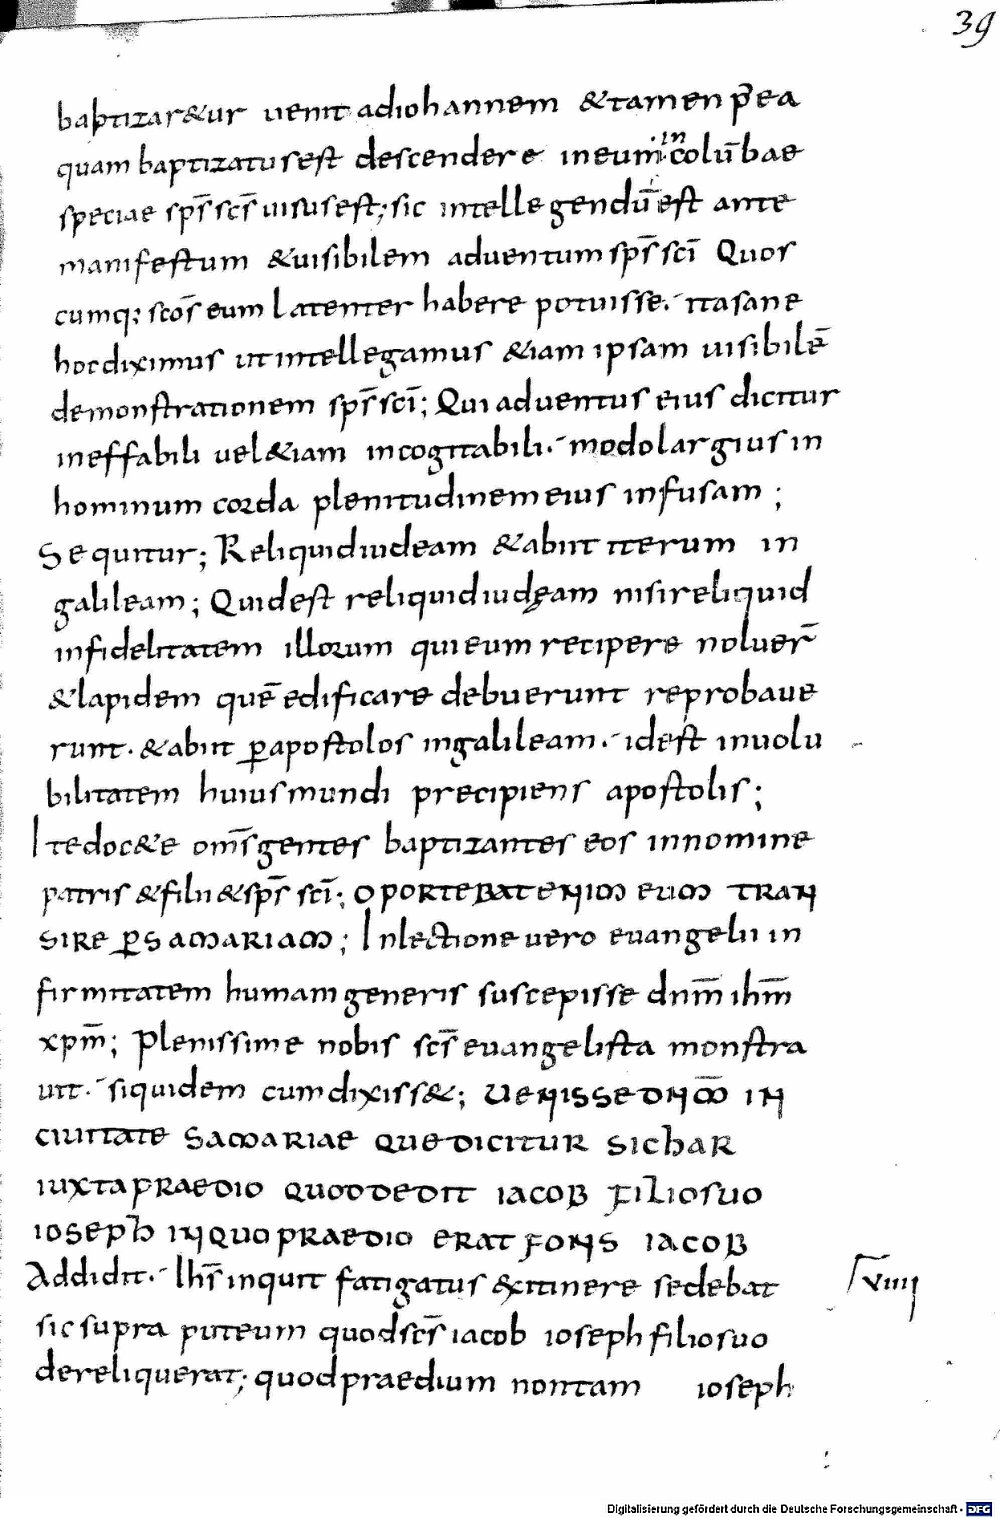 39
baptizar&ur uenit adiohannem &tamen p̄ea
quam baptizatus est descendere ineum in colūbae
speciae sp̄s sc̄s uisus est; sic intellegendū est ante
manifestum &uisibilem aduentum sp̄s sc̄i Quos
cumq; scōs eum latenter habere potuisse. ita sane
hoc diximus ut intellegamus &iam ipsam uisibilē
demonstrationem sp̄s sc̄i; Qui aduentus eius dicitur
ineffabili uel &iam incogitabili. modo largius in
hominum corda plenitudinem eius infusam ;
Sequitur; Reliquid iudeam &abiit iterum in
galileam; Quid est reliquid iudęam nisi reliquid
infidelitatem illorum qui eum recipere noluer̄
&lapidem quē edificare debuerunt reprobaue
runt. &abiit ꝑapostolos ingalileam. id est inuolu
bilitatem huius mundi precipiens apostolis;
Ite doc&e om̄s gentes baptizantes eos innomine
patris &filii &sp̄s sc̄i; OPORTEBAT ENIM EUM TRAN
SIRE ꝑSAMARIAM; In lectione uero euangelii in
firmitatem humani generis suscepisse dnm̄ ihm̄
xpm̄; Plenissime nobis sc̄s euangelista monstra
uit. siquidem cum dixiss&; UENISSE DNM̄ IN
CIUITATE SAMARIAE QUE DICITUR SICHAR
IUXTA PRAEDIO QUOD DEDIT IACOB FILIO SUO
IOSEPH IN QUO PRAEDIO ERAT FONS IACOB
Addidit. Ih̄s inquit fatigatus &xitinere sedebat
uiiii
sic supra puteum quod sc̄s iacob ioseph filio suo
dereliquerat; quod praedium non tam ioseph
Digitalisierung gefördert durch die Deutsche Forschungsgemeinschaft - DFG